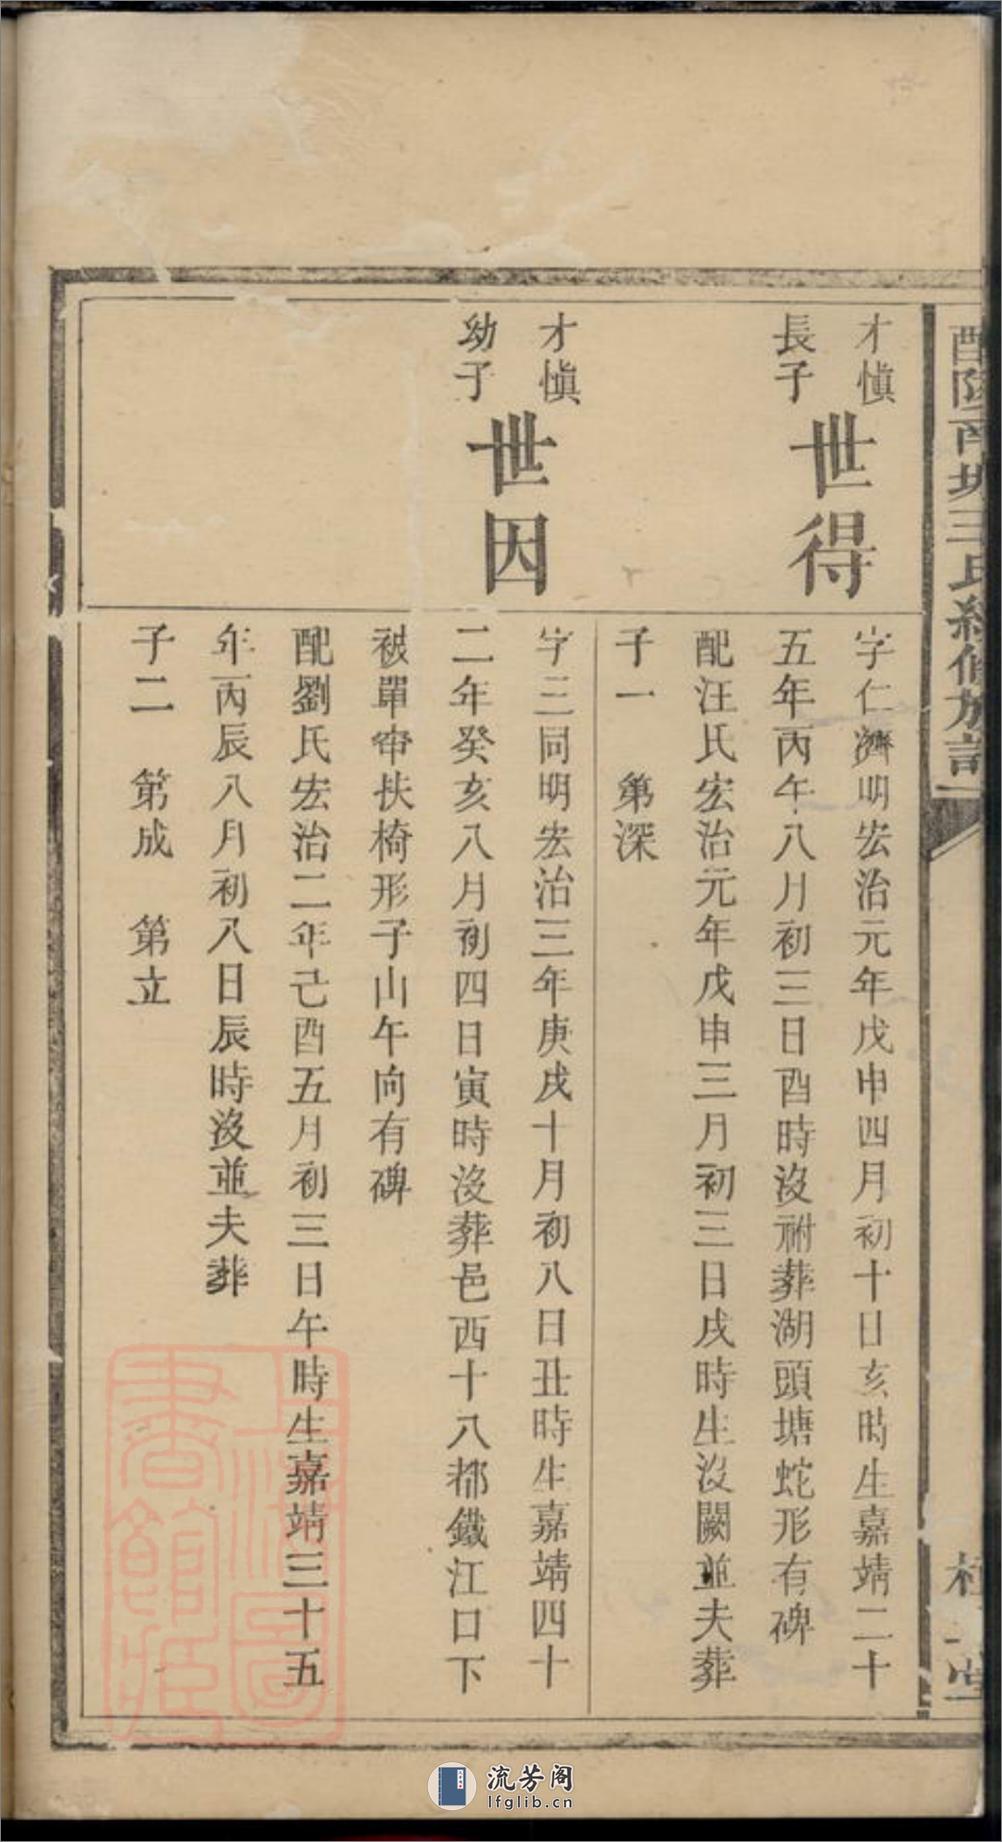 醴陵南城王氏續修族譜
才慎
長子
世得
字仁濟明宏治元年戊申四月初十日亥時生嘉靖二十
五年丙午八月初三日酉時沒祔葬湖頭塘蛇形有碑
配汪氏宏治元年戊申三月初三日戌時生沒闕並夫葬
子一 第深
才慎
幼子
世因
字三同明宏治三年庚戌十月初八日丑時生嘉靖四十
二年癸亥八月初四日寅時沒葬邑西十八都鐵江口下
被單帘扶椅形子山午向有碑
配劉氏宏治二年己酉五月初三日午時生嘉靖三十五
年丙辰八月初八日辰時沒並夫葬
子二 第成 第立
上海圖書館藏
流芳阁
lfglib.cn